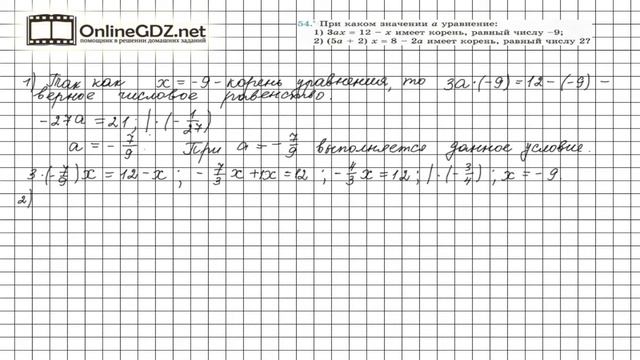 OnlineGDZ.net
помощник в решении домашних заданий
54. При каком значении a уравнение:
1) 3ax = 12 − x имеет корень, равный числу −9;
2) (5a + 2) x = 8 − 2a имеет корень, равный числу 2?
1) Так как x = −9 - корень уравнения, то 3a·(−9) = 12 − (−9) −
верное числовое равенство.
−27a = 21; | · (−1/27)
a = −7/9. При a = −7/9 выполняется данное условие.
3·(−7/9)x = 12 − x ; −7/3 x + 1x = 12 ; −4/3 x = 12 ; | · (−3/4) ; x = −9.
2)